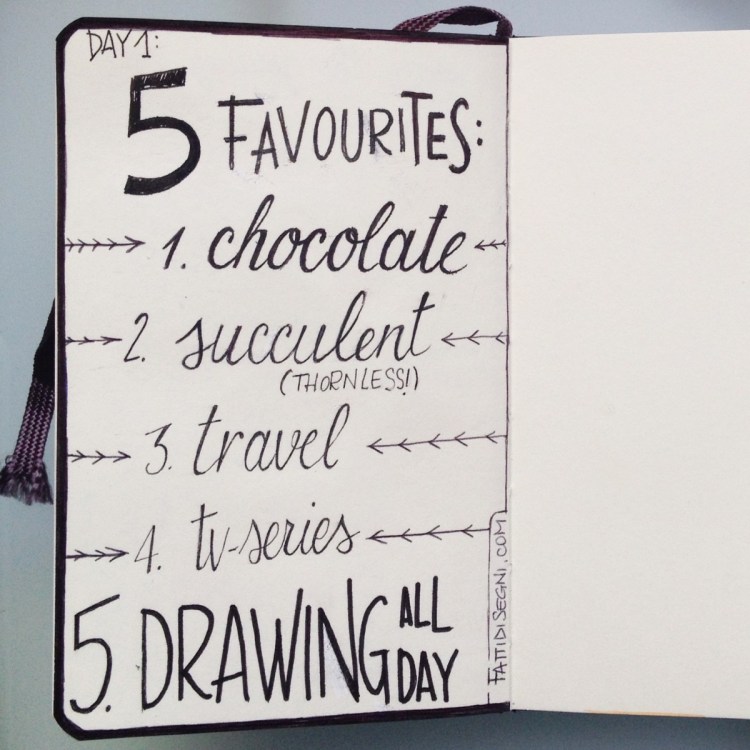 DAY 1:
5 FAVOURITES:
1. chocolate
2. succulent
(THORNLESS!)
3. travel
4. tv-series
5. DRAWING ALL DAY
FATTIDISEGNI.COM